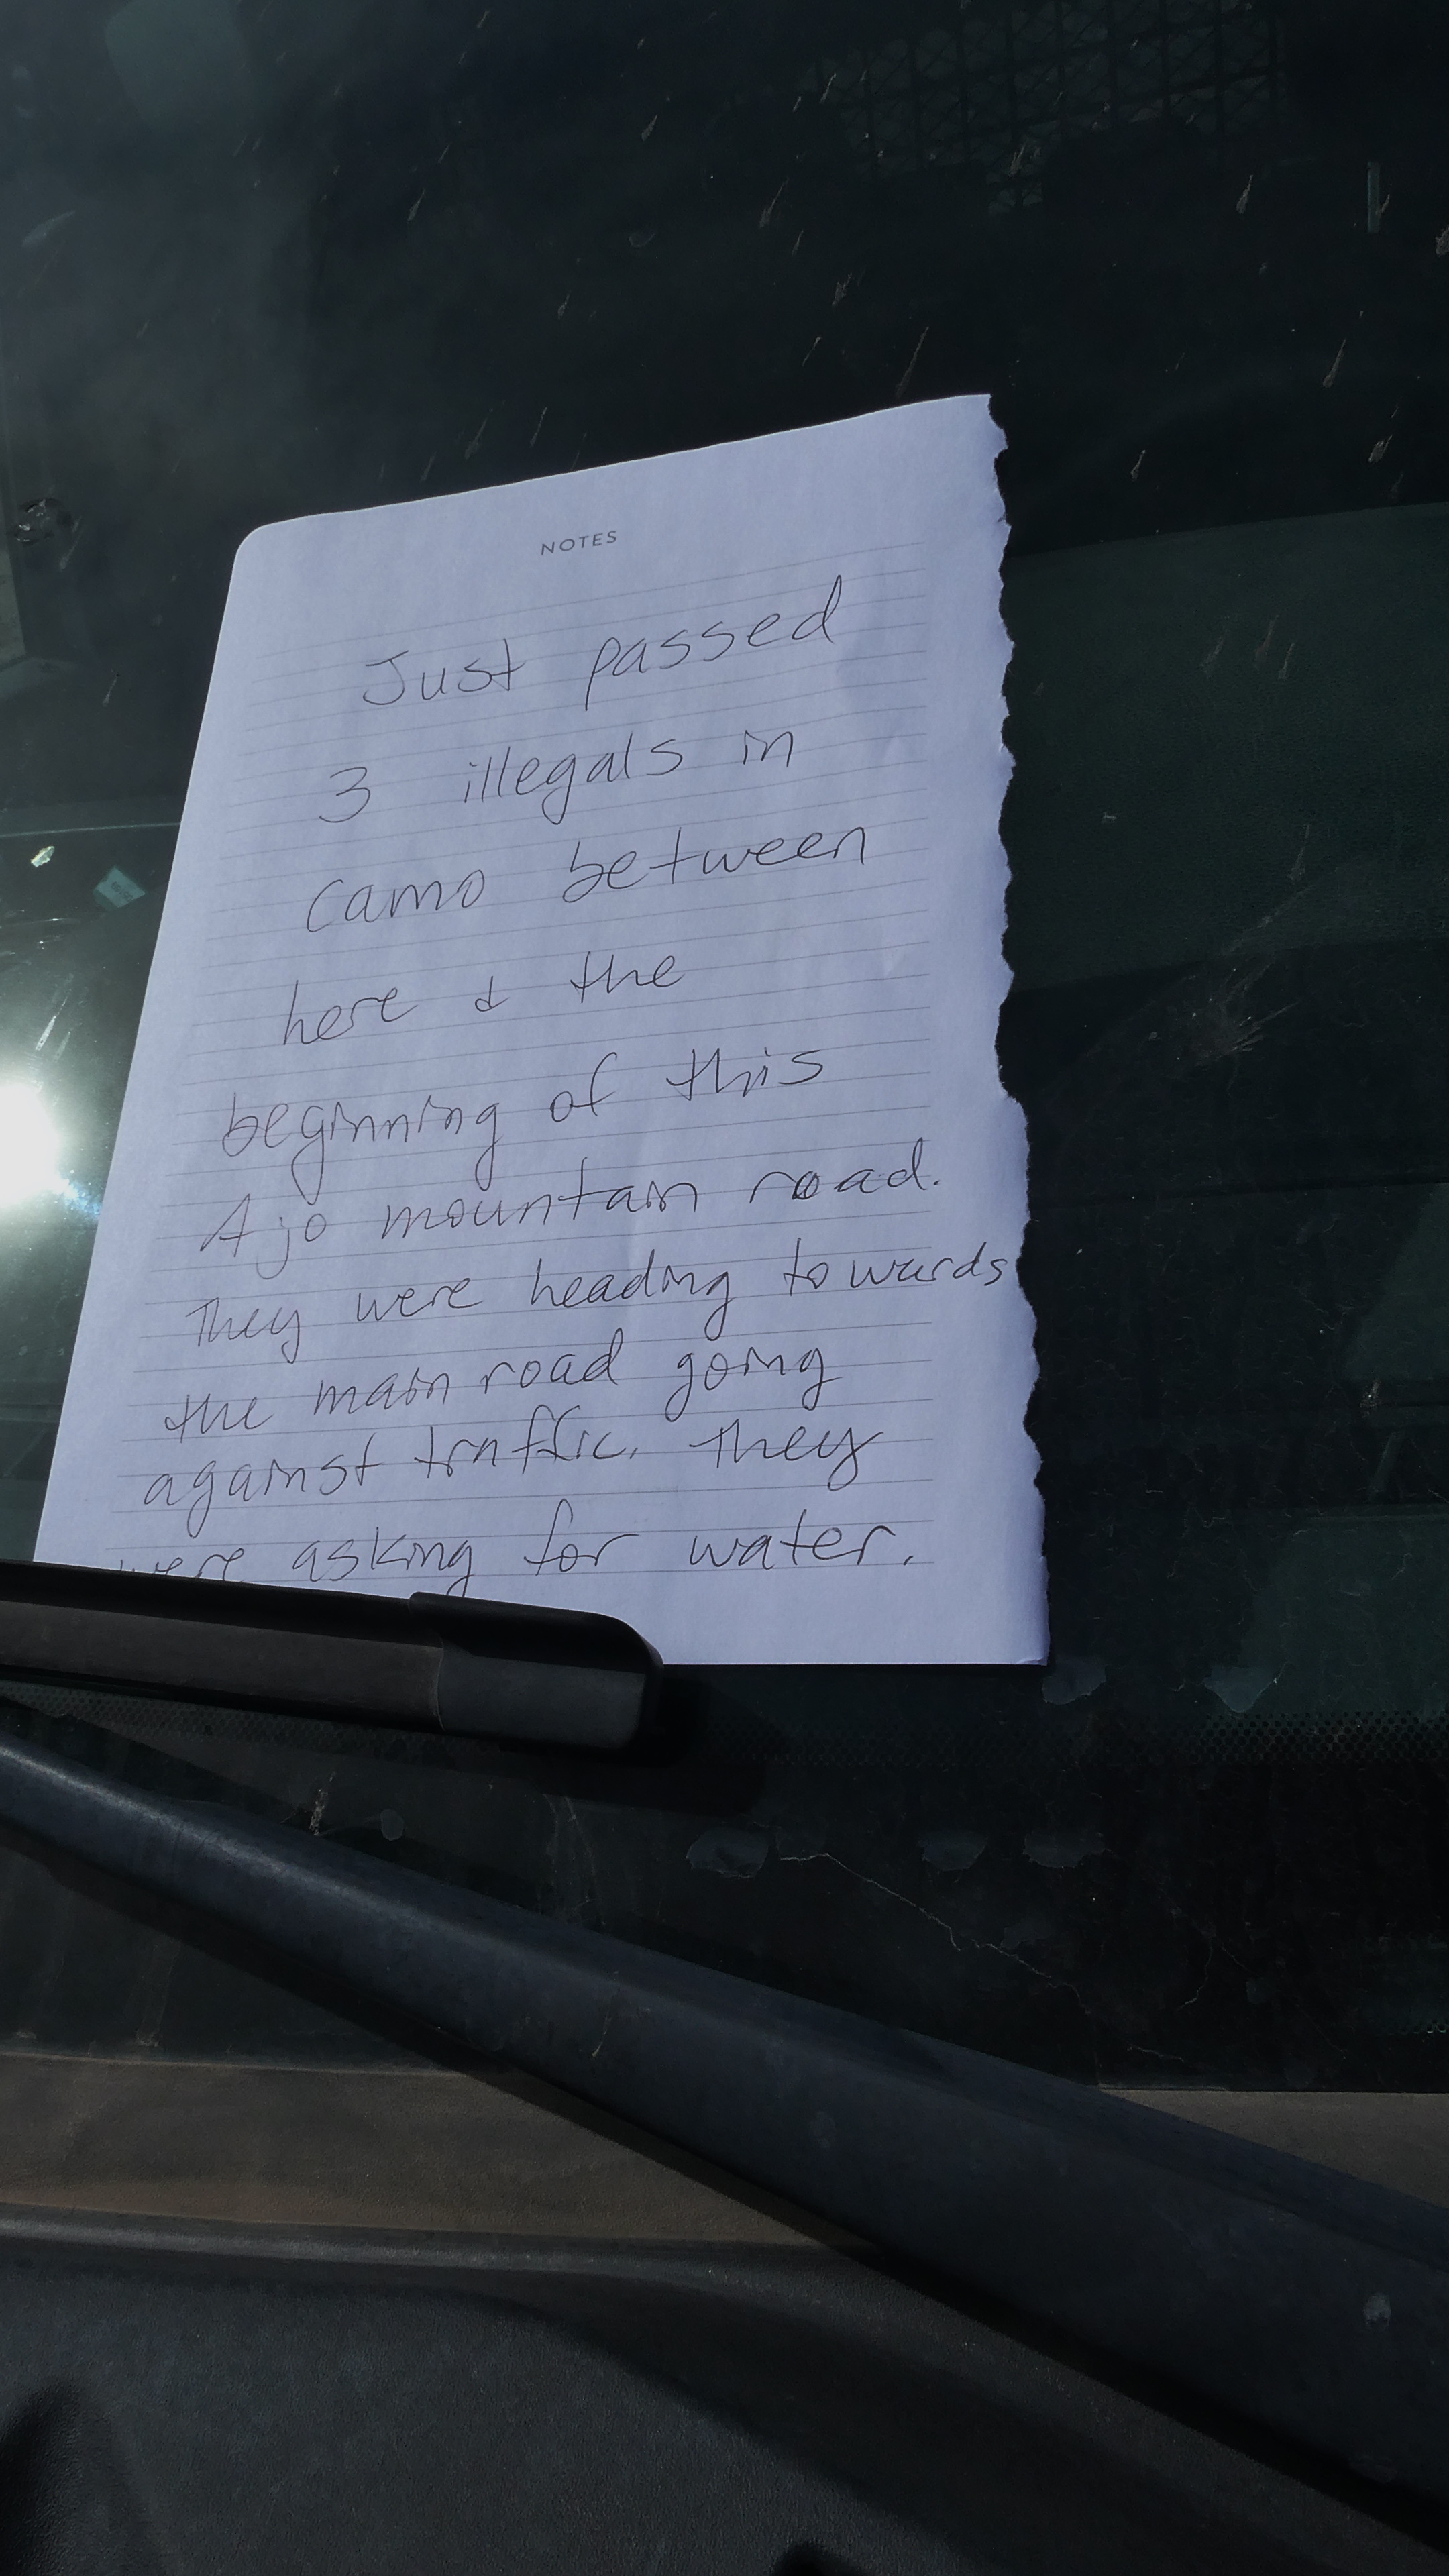 NOTES
Just passed
3 illegals in
camo between
here & the
beginning of this
Ajo mountain road.
They were heading towards
the main road going
against traffic. They
were asking for water.